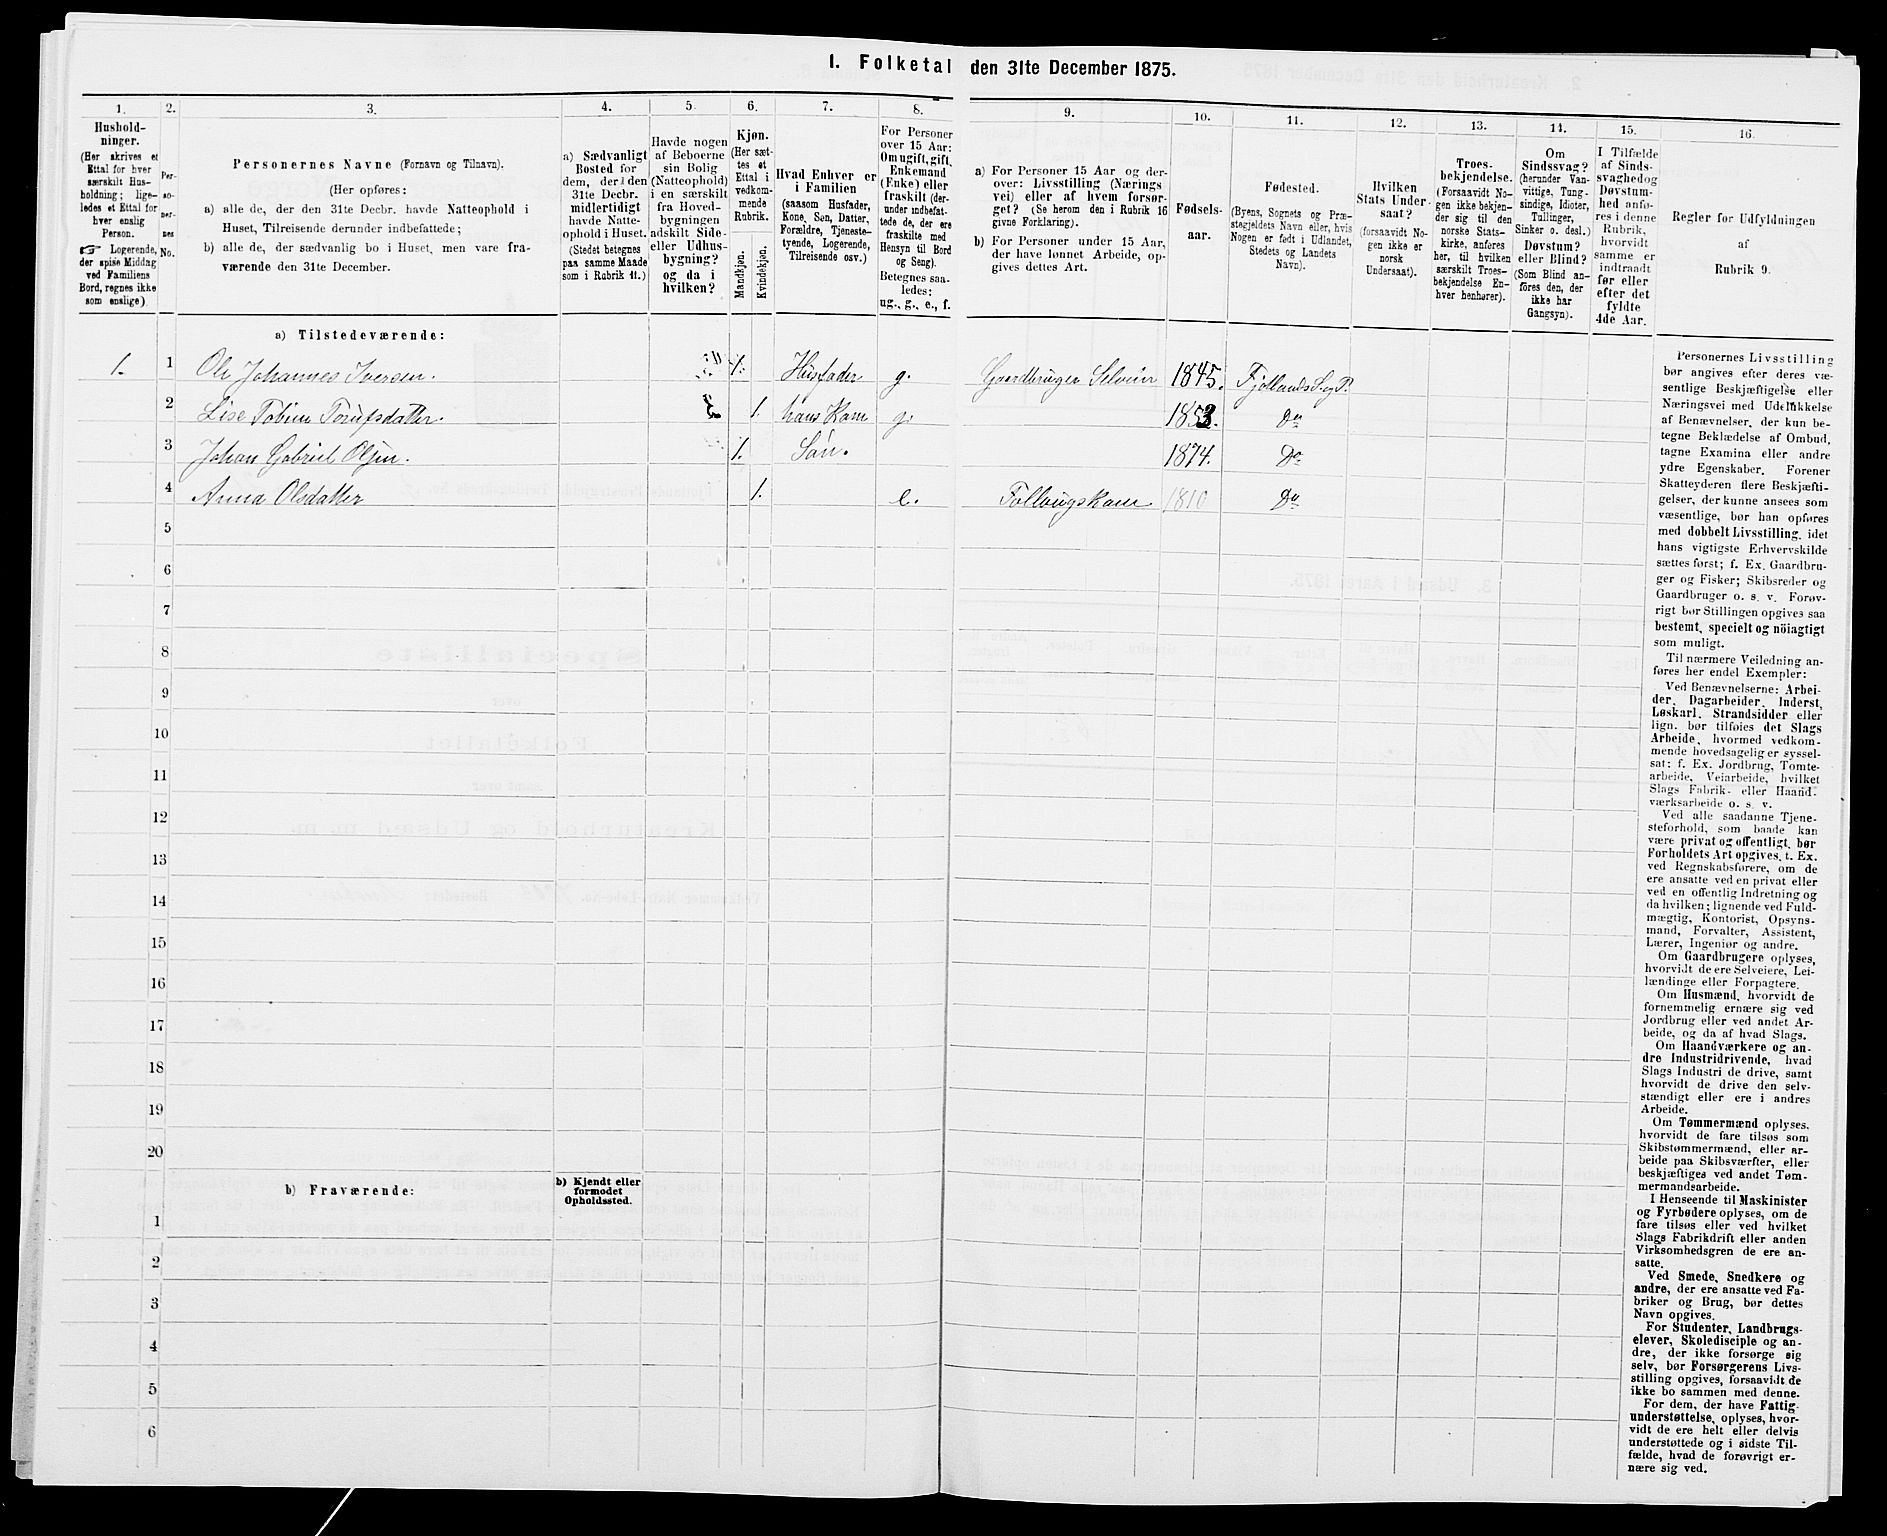 1. Folketal den 31te December 1875.
1.
Hushold-
ninger.
(Her skrives et
Ettal for hver
særskilt Hus-
holdning; lige-
ledes et Ettal for
hver enslig
Person.
☞ Logerende,
der spise Middag
ved Familiens
Bord, regnes ikke
som enslige).
2.
Per-
so-
ner-
nes
No.
3.
Personernes Navne (Fornavn og Tilnavn).
(Her opføres:
a) alle de, der den 31te Decbr. havde Natteophold i
Huset, Tilreisende derunder indbefattede;
b) alle de, der sædvanlig bo i Huset, men vare fra-
værende den 31te December.
4.
a) Sædvanligt
Bosted for
dem, der i den
31te Decbr.
midlertidigt
havde Natte-
ophold i Huset.
(Stedet betegnes
paa samme Maade
som i Rubrik 11.)
5.
Havde nogen
af Beboerne
sin Bolig
(Natteophold)
i en særskilt
fra Hoved-
bygningen
adskilt Side-
eller Udhus-
bygning?
og da i
hvilken?
6.
Kjøn.
(Her sæt-
tes et
Ettal i
vedkom-
mende
Rubrik.
Mandkjøn.
Kvindekjøn.
7.
Hvad Enhver er
i Familien
(saasom Husfader,
Kone, Søn, Datter,
Forældre, Tjeneste-
tyende, Logerende,
Tilreisende osv.)
8.
For Personer
over 15 Aar:
Om ugift, gift,
Enkemand
(Enke) eller
fraskilt (der-
under indbefat-
tede de, der ere
fraskilte med
Hensyn til Bord
og Seng).
Betegnes saa-
ledes:
ug., g., e., f.
9.
a) For Personer 15 Aar og der-
over: Livsstilling (Nærings
vei) eller af hvem forsør-
get? (Se herom den i Rubrik 16
givne Forklaring).
b) For Personer under 15 Aar,
der have lønnet Arbeide, op-
gives dettes Art.
10.
Fødsels-
aar.
11.
Fødested.
(Byens, Sognets og Præ-
stegjeldets Navn eller, hvis
Nogen er født i Udlandet,
Stedets og Landets
Navn).
12.
Hvilken
Stats Under-
saat?
(forsaavidt No-
gen ikke er
norsk
Undersaat).
13.
Troes-
bekjendelse.
(Forsaavidt No-
gen ikke bekjen-
der sig til den
norske Stats-
kirke, anføres
her, til hvilken
særskilt Troes-
bekjendelse En-
hver henhører).
14.
Om
Sindssvag?
(herunder Van-
vittige, Tung-
sindige, Idioter,
Tullinger,
Sinker o. desl.)
Døvstum?
eller Blind?
(Som Blind an-
føres den, der
ikke har
Gangsyn).
15.
I Tilfælde
af Sinds-
svaghed og
Døvstum-
hed anfø-
res i denne
Rubrik,
hvorvidt
samme er
indtraadt
før eller
efter det
fyldte
4de Aar.
16.
Regler for Udfyldningen
af
Rubrik 9.
a) Tilstedeværende:
1. 1 Ole Johannes Iversen. 1. Husfader g. Gaardbruger Selveier 1845. Fjotlands S. og P.
2 Lise Tobine Torufsdatter. 1. hans Kone g. 1853. Do
3 Johan Gabriel Olsen. 1. Søn. 1874. Do
4 Anna Olsdatter 1. e. Follougskone 1810 Do
5
6
7
8
9
10
11
12
13
14
15
16
17
18
19
20
b) Fraværende:
b) Kjendt eller
formodet
Opholdssted.
1
2
3
4
5
6
Personernes Livsstilling
bør angives efter deres væ-
sentlige Beskjæftigelse eller
Næringsvei med Udelukkelse
af Benævnelser, der kun be-
tegne Beklædelse af Ombud,
tagne Examina eller andre
ydre Egenskaber. Forener
Skatteyderen flere Beskjæfti-
gelser, der kunne ansees som
væsentlige, bør han opføres
med dobbelt Livsstilling, idet
hans vigtigste Erhvervskilde
sættes først; f. Ex. Gaardbru-
ger og Fisker; Skibsreder og
Gaardbruger o. s. v. Forøv-
rigt bør Stillingen opgives saa
bestemt, specielt og nöiagtigt
som muligt.
Til nærmere Veiledning an-
føres her endel Exempler:
Ved Benævnelserne: Arbei-
der, Dagarbeider, Inderst,
Løskarl, Strandsidder eller
lign. bør tilføies det Slags
Arbeide, hvormed vedkom-
mende hovedsagelig er syssel-
sat: f. Ex. Jordbrug, Tomte-
arbeide, Veiarbeide, hvilket
Slags Fabrik- eller Haand-
værksarbeide o. s. v.
Ved alle saadanne Tjene-
steforhold, som baade kan
være privat og offentligt, bør
Forholdets Art opgives, t. Ex.
ved Regnskabsførere, om de
ere ansatte ved en privat eller
ved en offentlig Indretning og
da hvilken; lignende ved Fuld-
mægtig, Kontorist, Opsyns-
mand, Forvalter, Assistent,
Lærer, Ingeniør og andre.
Om Gaardbrugere oplyses,
hvorvidt de ere Selveiere, Lei-
lændinge eller Forpagtere.
Om Husmænd, hvorvidt de
fornemmelig ernære sig ved
Jordbrug eller ved andet Ar-
beide, og da af hvad Slags.
Om Haandværkere og an-
dre Industridrivende, hvad
Slags Industri de drive, samt
hvorvidt de drive den selv-
stændigt eller ere i andres
Arbeide.
Om Tømmermænd oplyses,
hvorvidt de fare tilsøs som
Skibstømmermænd, eller ar-
beide paa Skibsværfter, eller
beskjæftiges ved andet Tøm-
mermandsarbeide.
I Henseende til Maskinister
og Fyrbødere oplyses, om de
fare tilsøs eller ved hvilket
Slags Fabrikdrift eller anden
Virksomhedsgren de ere an-
satte.
Ved Smede, Snedkere og
andre, der ere ansatte ved Fa-
briker og Brug, bør dettes
Navn opgives.
For Studenter, Landbrugs-
elever, Skoledisciple og an-
dre, der ikke forsørge sig
selv, bør Forsørgerens Livs-
stilling opgives, forsaavidt de
ikke bo sammen med denne.
For dem, der have Fattig-
understøttelse, oplyses, hvor-
vidt de ere helt eller delvis
understøttede og i sidste Til-
fælde, hvad de forøvrigt er-
nære sig ved.